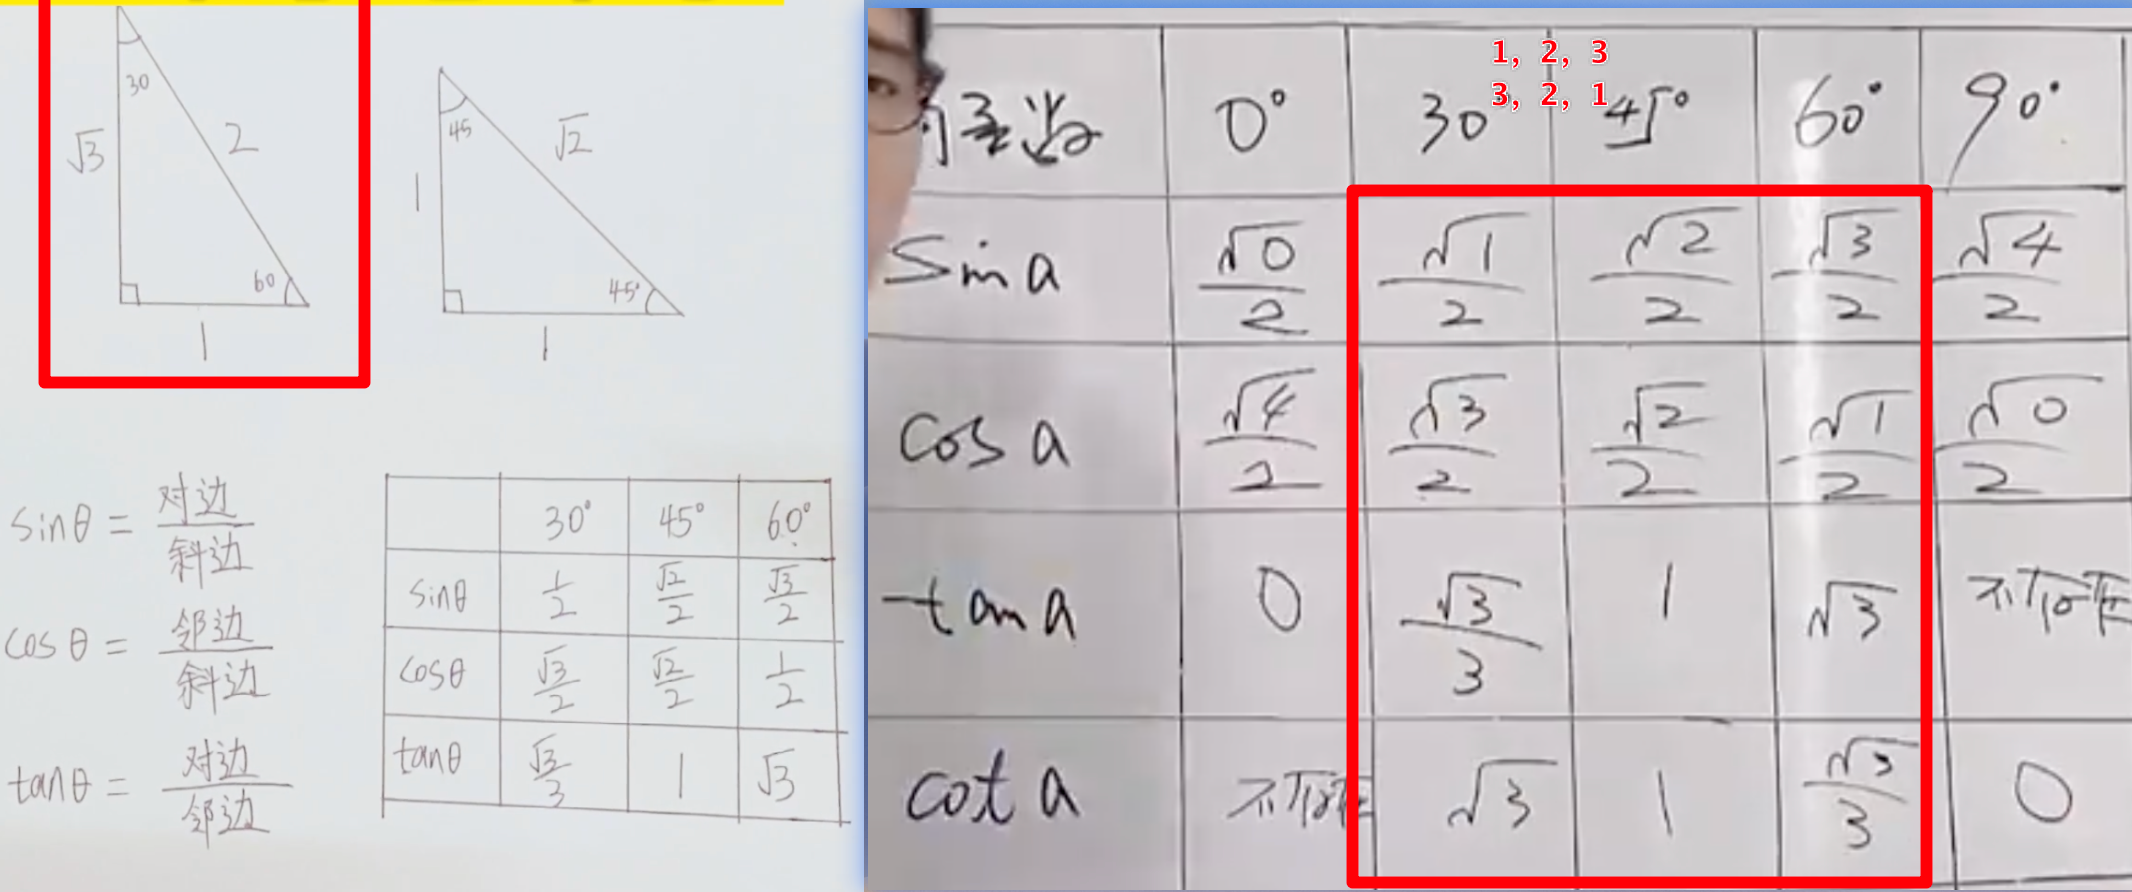 30
√3
2
60
1
45
√2
1
45°
1
sinθ = 对边/斜边
cosθ = 邻边/斜边
tanθ = 对边/邻边
30° 45° 60°
sinθ 1/2 √2/2 √3/2
cosθ √3/2 √2/2 1/2
tanθ √3/3 1 √3
1, 2, 3
3, 2, 1
0° 30° 45° 60° 90°
Sin a √0/2 √1/2 √2/2 √3/2 √4/2
cos a √4/2 √3/2 √2/2 √1/2 √0/2
tan a 0 √3/3 1 √3 不存在
cot a 不存在 √3 1 √3/3 0